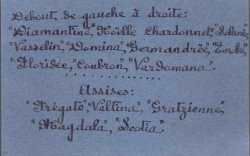 Debout, de gauche à droite:
"Diamantine", "Keille Chardonnet,
Vasselin", "Domina", Germandrée",
"Floridée", Coubron", Vardomana".
Assises:
"Frégate", "Valtina", "Gratzienne",
"Magdala", "Scotia".